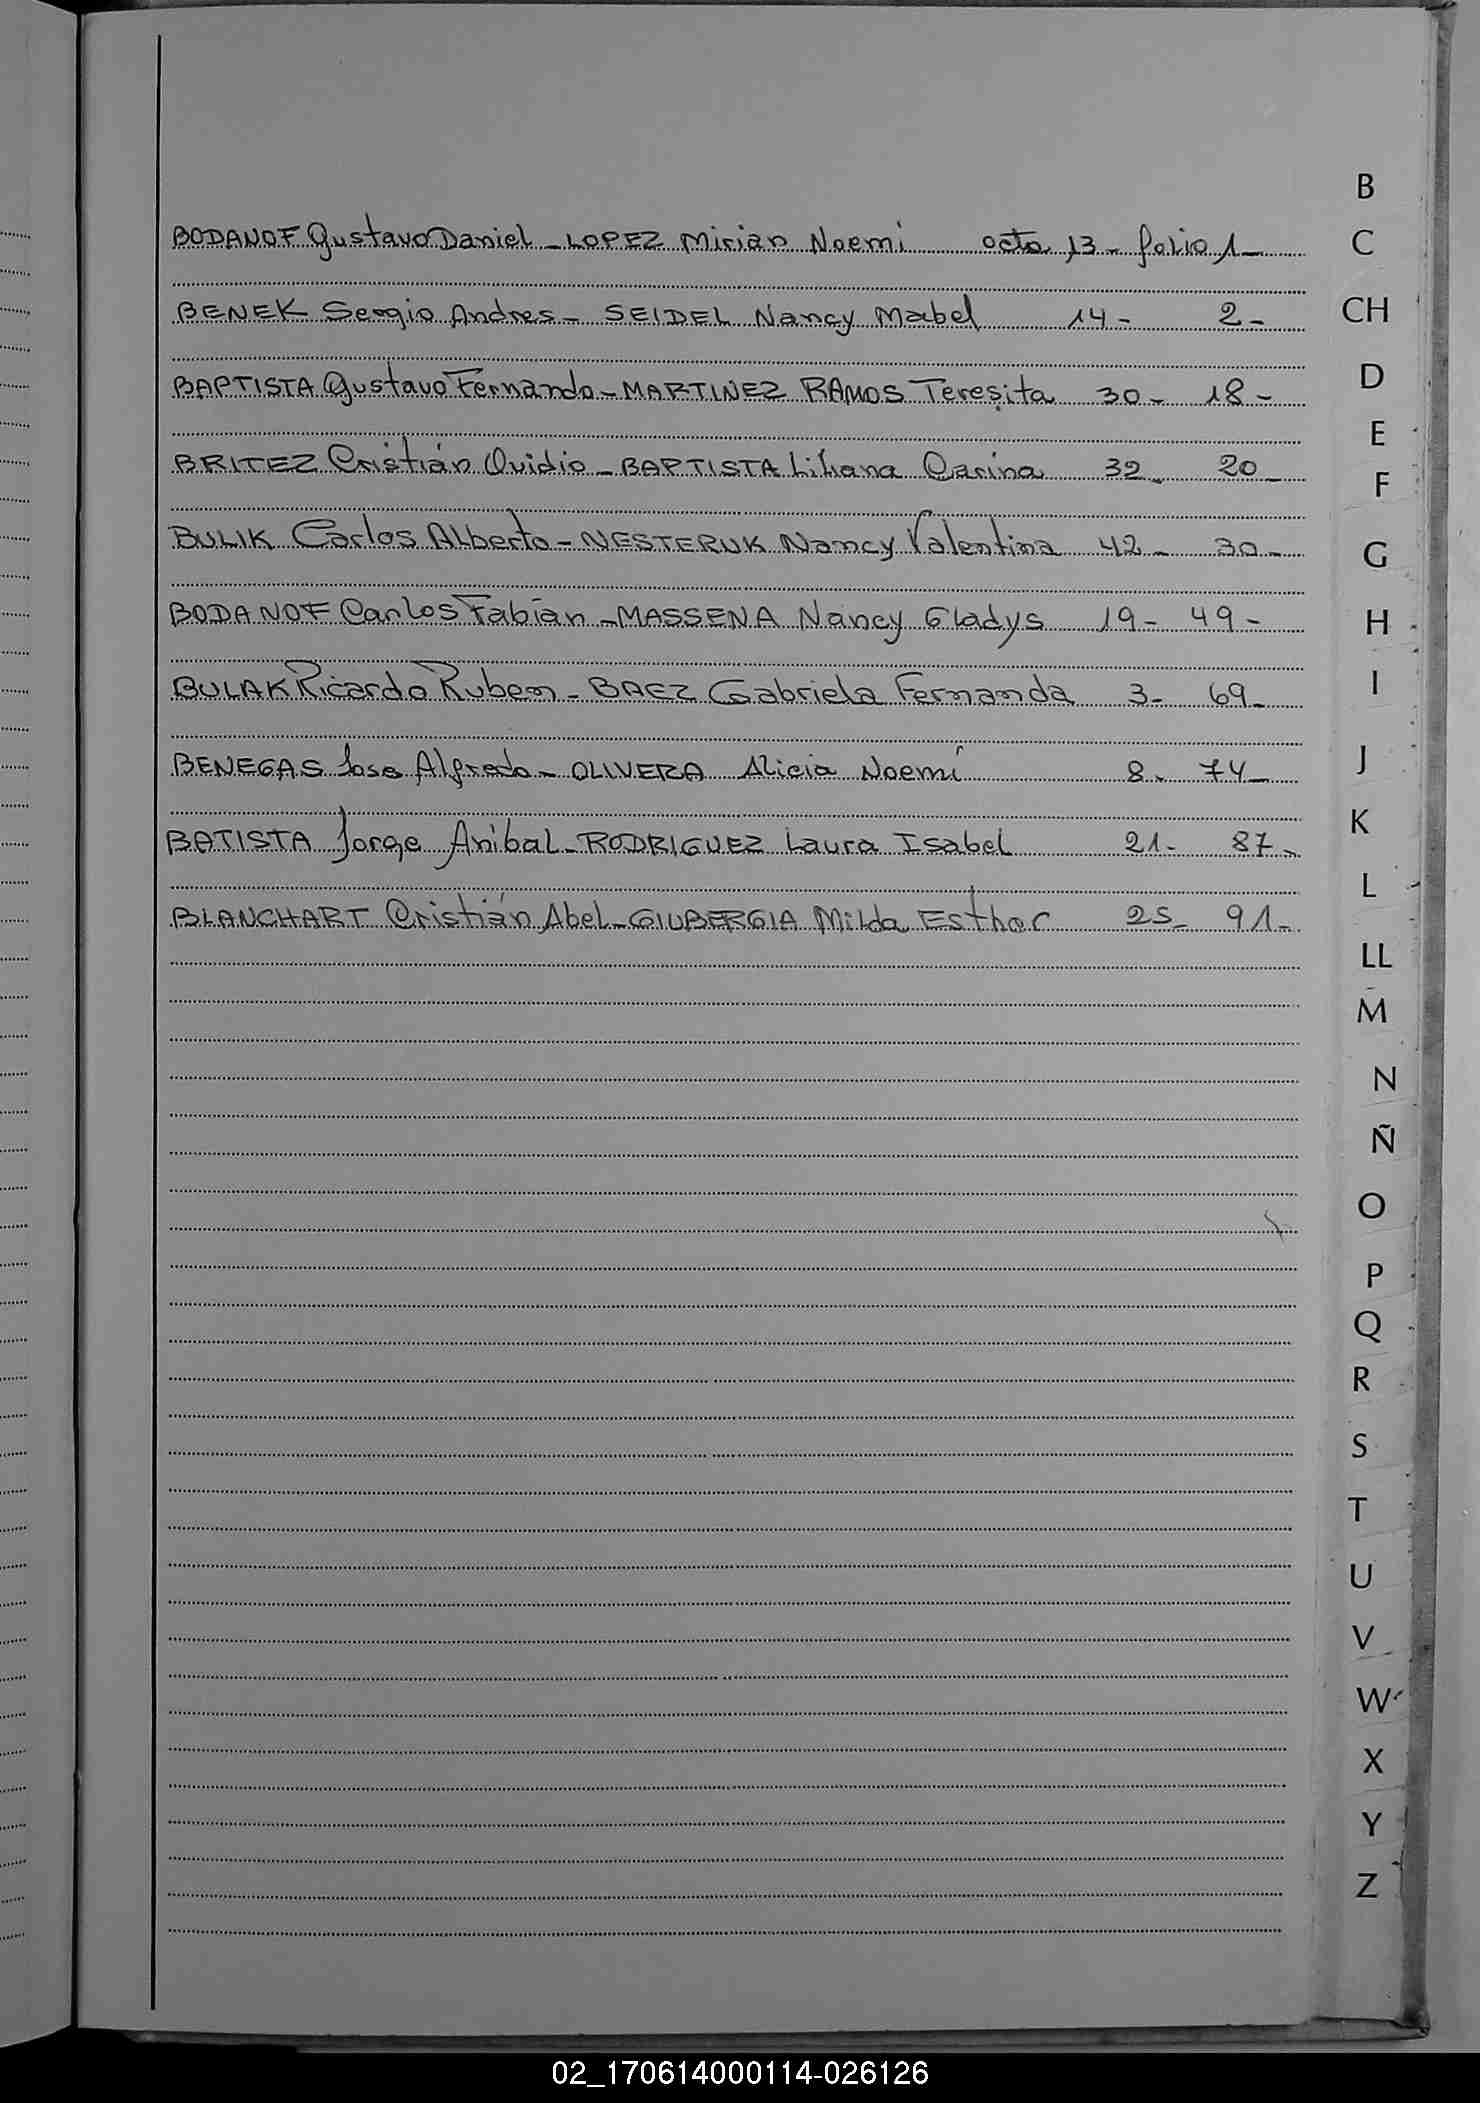 BODANOF Gustavo Daniel - LOPEZ Mirian Noemi acta 13 - folio 1 -
BENEK Sergio Andres - SEIDEL Nancy Mabel 14 - 2 -
BAPTISTA Gustavo Fernando - MARTINEZ RAMOS Teresita 30 - 18 -
BRITEZ Cristián Ovidio - BAPTISTA Liliana Carina 32 - 20 -
BULIK Carlos Alberto - NESTERUK Nancy Valentina 42 - 30 -
BODANOF Carlos Fabián - MASSENA Nancy Gladys 19 - 49 -
BULAK Ricardo Ruben - BAEZ Gabriela Fernanda 3 - 69 -
BENEGAS Jose Alfredo - OLIVERA Alicia Noemí 8 - 74 -
BATISTA Jorge Anibal - RODRIGUEZ Laura Isabel 21 - 87 -
BLANCHART Cristián Abel - GIUBERGIA Milda Esther 25 - 91 -
B
C
CH
D
E
F
G
H
I
J
K
L
LL
M
N
Ñ
O
P
Q
R
S
T
U
V
W
X
Y
Z
02_170614000114-026126